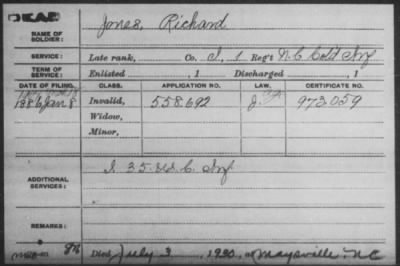 DEAD
NAME OF SOLDIER: Jones, Richard
SERVICE: Late rank, Co. I, 1 Reg't N.C. Cold Inf
TERM OF SERVICE: Enlisted , 1 Discharged , 1
DATE OF FILING. CLASS. APPLICATION NO. LAW. CERTIFICATE NO.
1886 Jan 8 Invalid, 558.692 973059
Widow,
Minor,
ADDITIONAL SERVICES: I 35 U.S. C. Inf
REMARKS:
Died July 3, 1930, at Maysville, N.C